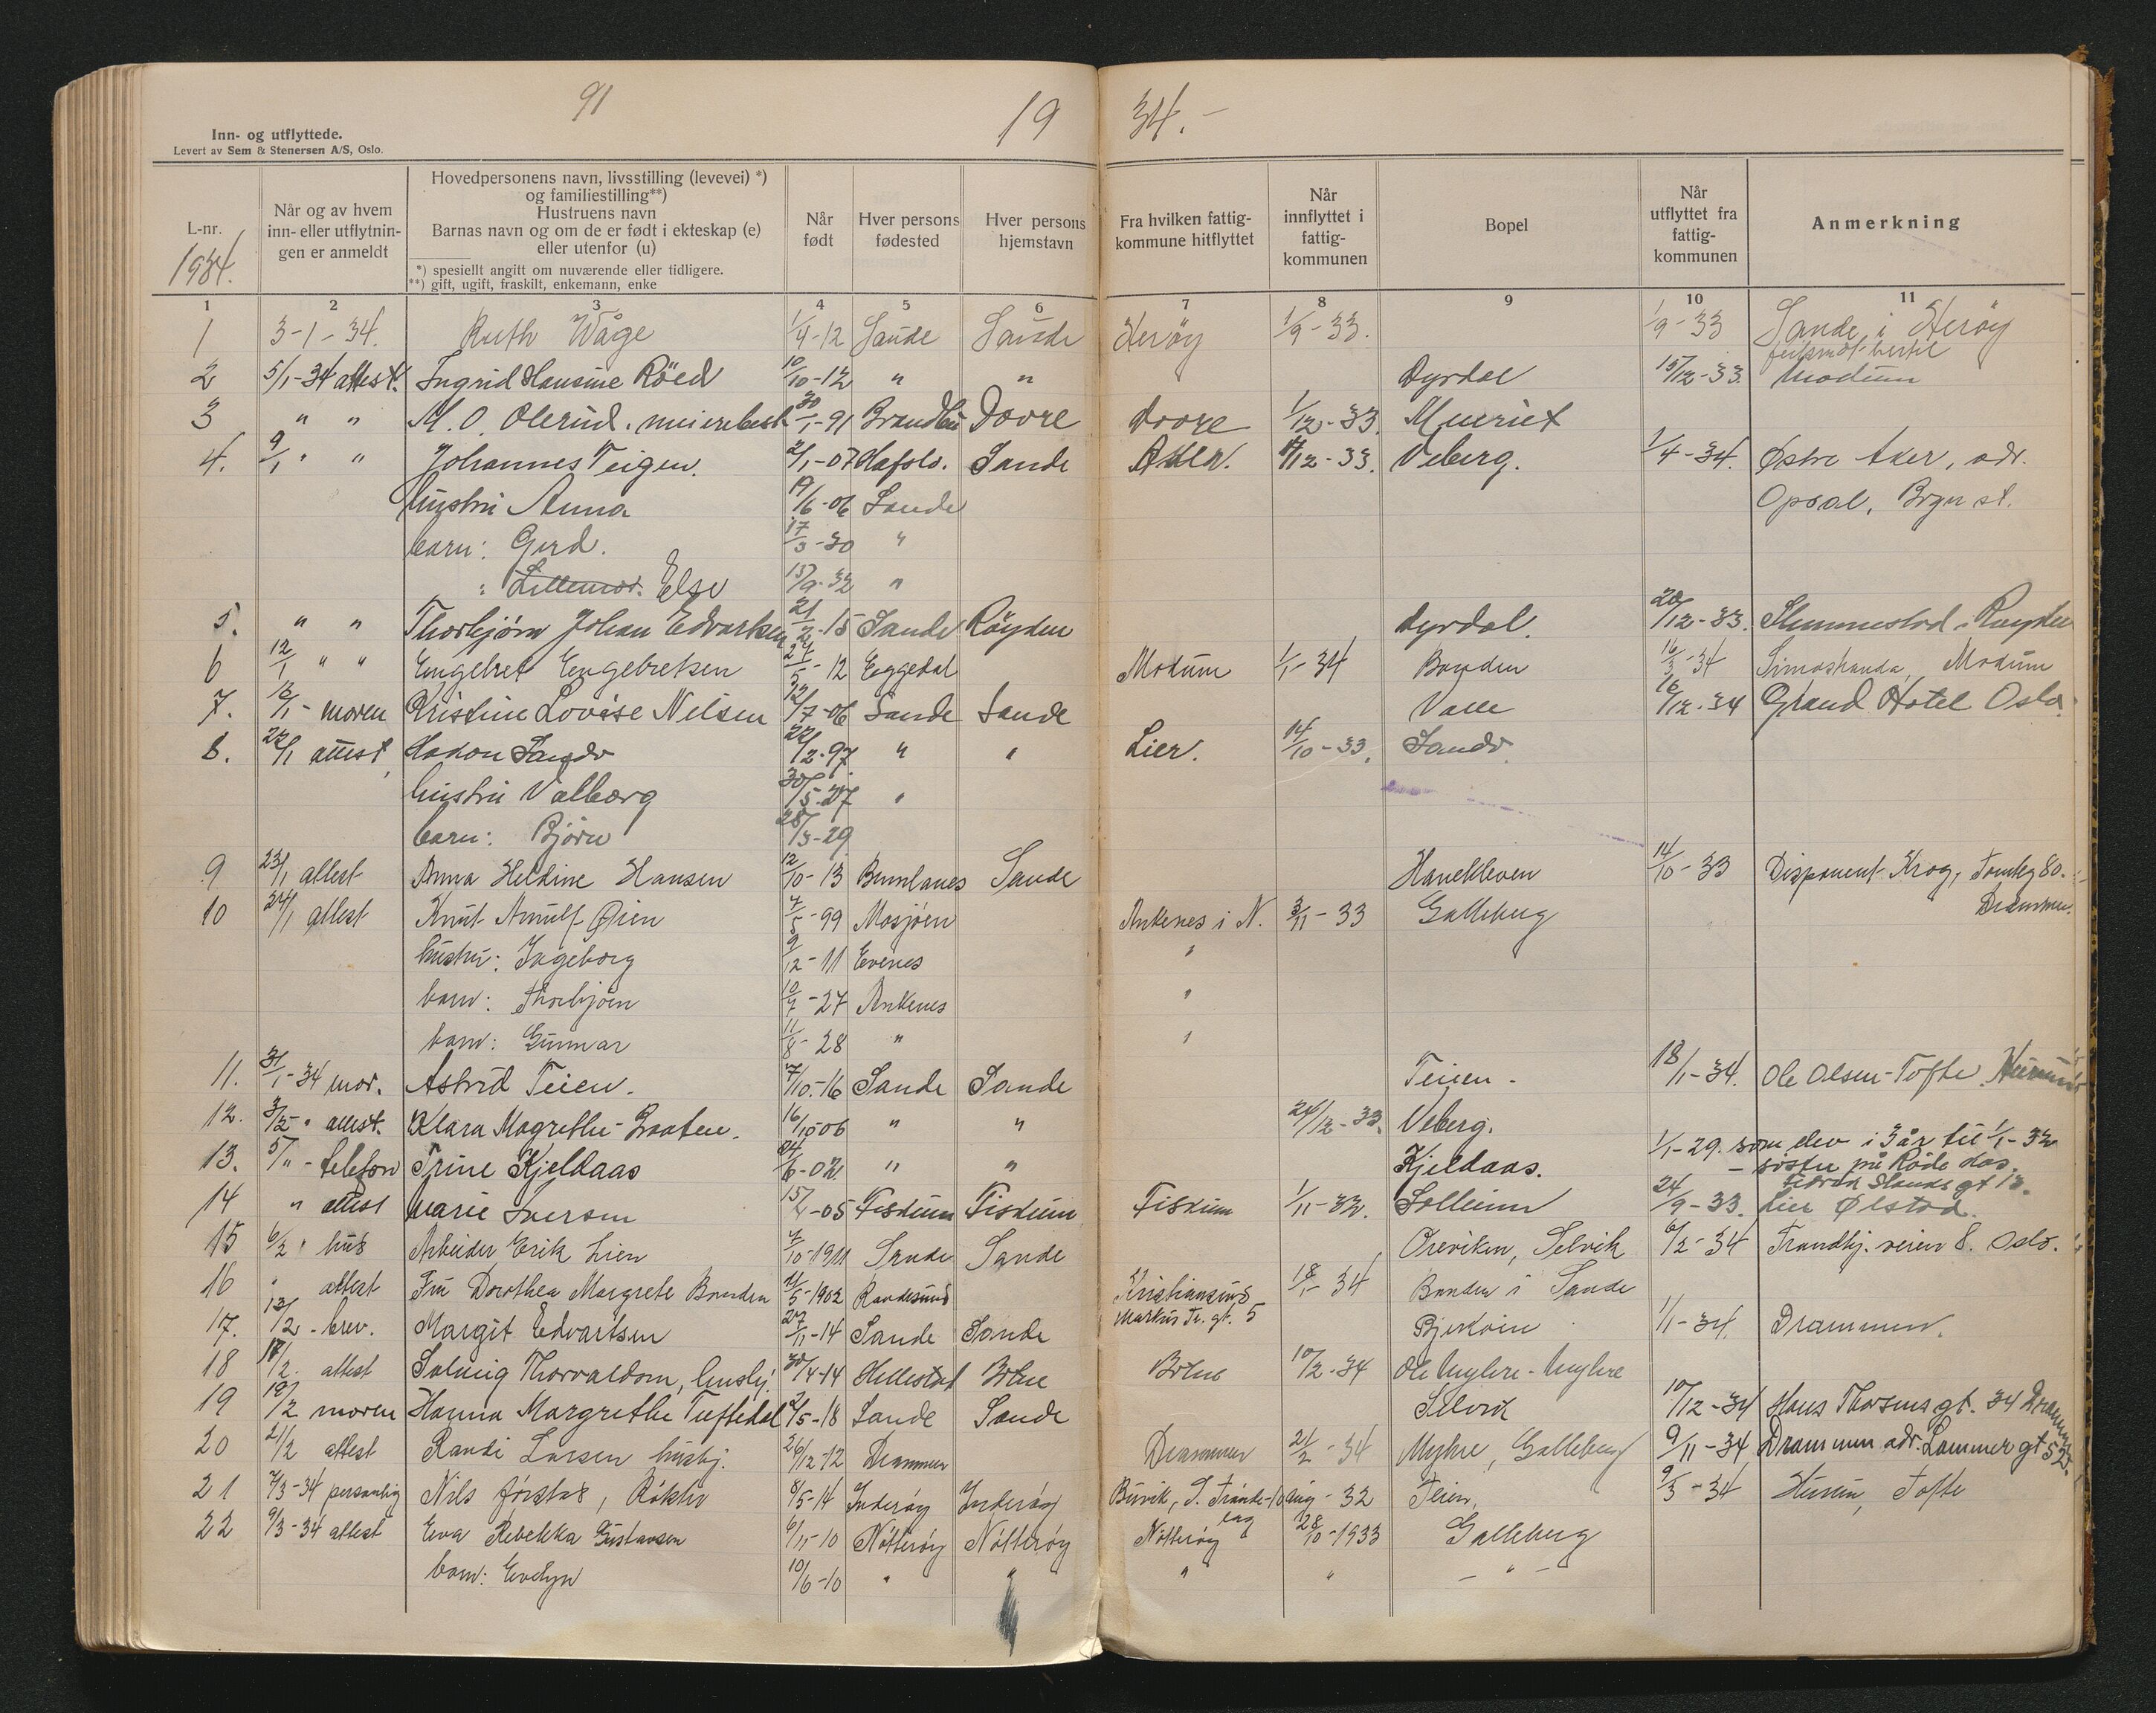 91
19 34.-
Inn- og utflyttede.
Levert av Sem & Stenersen A/S, Oslo.
L-nr.
1934.
Når og av hvem
inn- eller utflytnin-
gen er anmeldt
Hovedpersonens navn, livsstilling (levevei) *)
og familiestilling**)
Hustruens navn
Barnas navn og om de er født i ekteskap (e)
eller utenfor (u)
*) spesiellt angitt om nuværende eller tidligere.
**) gift, ugift, fraskilt, enkemann, enke
Når
født
Hver persons
fødested
Hver persons
hjemstavn
Fra hvilken fattig-
kommune hitflyttet
Når
innflyttet i
fattig-
kommunen
Bopel
Når
utflyttet fra
fattig-
kommunen
Anmerkning
1 2 3 4 5 6 7 8 9 10 11
1 3-1-34. Ruth Wåge 1/4-12 Sande Sande Herøy 1/9-33. 1/9-33 Sande i Herøy
2 5/1-34 attest. Ingrid Hansine Röed 10/10-12 " " Dyrdal 15/12-33. Modum
3 " " M. O. Olerud. 30/1-91 Brandbu Dovre Dovre 1/12-33. Meieriet
4. 9/1 " " Johannes Teigen. 2/1-07 Hafslo. Sande 12-33. Veberg. 1/4-34. Østre Aker, adr.
hustru Anna 19/6-06 Sande Opsal, Bryn st.
barn: Gerd. 17/3-30 "
: Lillemor. Else 13/9-32 "
5. " " Thorbjörn Johan Edvartsen 21/2-15 Sande Röyden Dyrdal. 20/12-33. Slemmestad i Röyken
6 12/1 " " Engebret Engebretsen 27/5-12 Eggedal Modum 1/1-34 Bonden 16/3-34 Simostranda, Modum
7. 13/1- moren Kristine Lovise Nilsen 12/7-06 Sande Sande Valle 16/12-34 Grand Hotel Oslo.
8. 22/1 attest, Hakon Sande 22/2-97 " " Lier. 14/10-33. Sande.
hustru Valborg 30/5-27 "
barn: Björn 28/3-29
9 23/1 attest Anna Heldine Hansen 12/10-13 Brunlanes Sande Hanekleven 14/10-33 Disponent Krog, Tomteg 80.
Drammen.
10 24/1 attest Knut Arnulf Øien 7/5-99 Mosjöen Ankenes i N. 3/11-33 Galleberg
hustru: Ingeborg 9/12-11 Evenes "
barn: Thorbjörn 10/7-27 Ankenes "
barn: Gunnar 11/8-28 " "
11. 31/1-34 mor. Astrid Teien. 7/10-16 Sande Sande Teien- 18/1-34. Ole Olsen-Tofte.
12. 3/2- " attest. Klara Magrethe Graaten. 16/10-06 " " 24/12-33. Veberg.
13. 5/"- telefon Trine Kjeldaas 6-02. " " Kjeldaas. 1/1-29. som elev i 3 år til 1/1-32
14 " attest Marie Iversen 15/-05 Fiskum Fiskum Fiskum 1/11-32. Solheim 24/9-33. Lier Ølstad.
15 6/2 " Arbeider Erik Lien 7/10-1911 Sande Sande Oreviken, Selvik 6/2-34 Trondhj. veien 8. Oslo.
16 " attest Fru Dorothea Margrete Bonden 11/5-1902 Randesund Kristiansund 18/1-34 Bonden i Sande
Markus Tr. gt. 5
17. 12/2- brev. Margit Edvartsen 27/11-14 Sande Sande 1/1-34. Drammen.
18 17/2. attest Solveig Thorvaldson, hushj. 30/4-14 Hillestad Botne Botne 10/2-34 Ole Myhre-Myhre
19 19/2 moren Hanna Margrethe Tuftedal 2/5-18 Sande Sande Selvik 10/12-34 Hans Thorsens gt. 34 Drammen
20 21/2 attest Randi Larsen hushj. 26/12-12 Drammen Drammen 21/2-34 Myhre, Galleberg 9/11-34 Drammen adr. Lammer gt 52.
21 7/3-34 personlig Nils Jörstad, Rökter 8/5-14 Inderöy Inderöy Buvik, S. Trönde-lag 10 aug-32 Teien, 9/3-34 Tofte
22 9/3-34 attest Eva Rebekka Gustavsen 6/11-10 Nötteröy Nötteröy Nötteröy 28/10-1933 Galleberg
barn: Evelyn 10/6-10 " " " " - " -